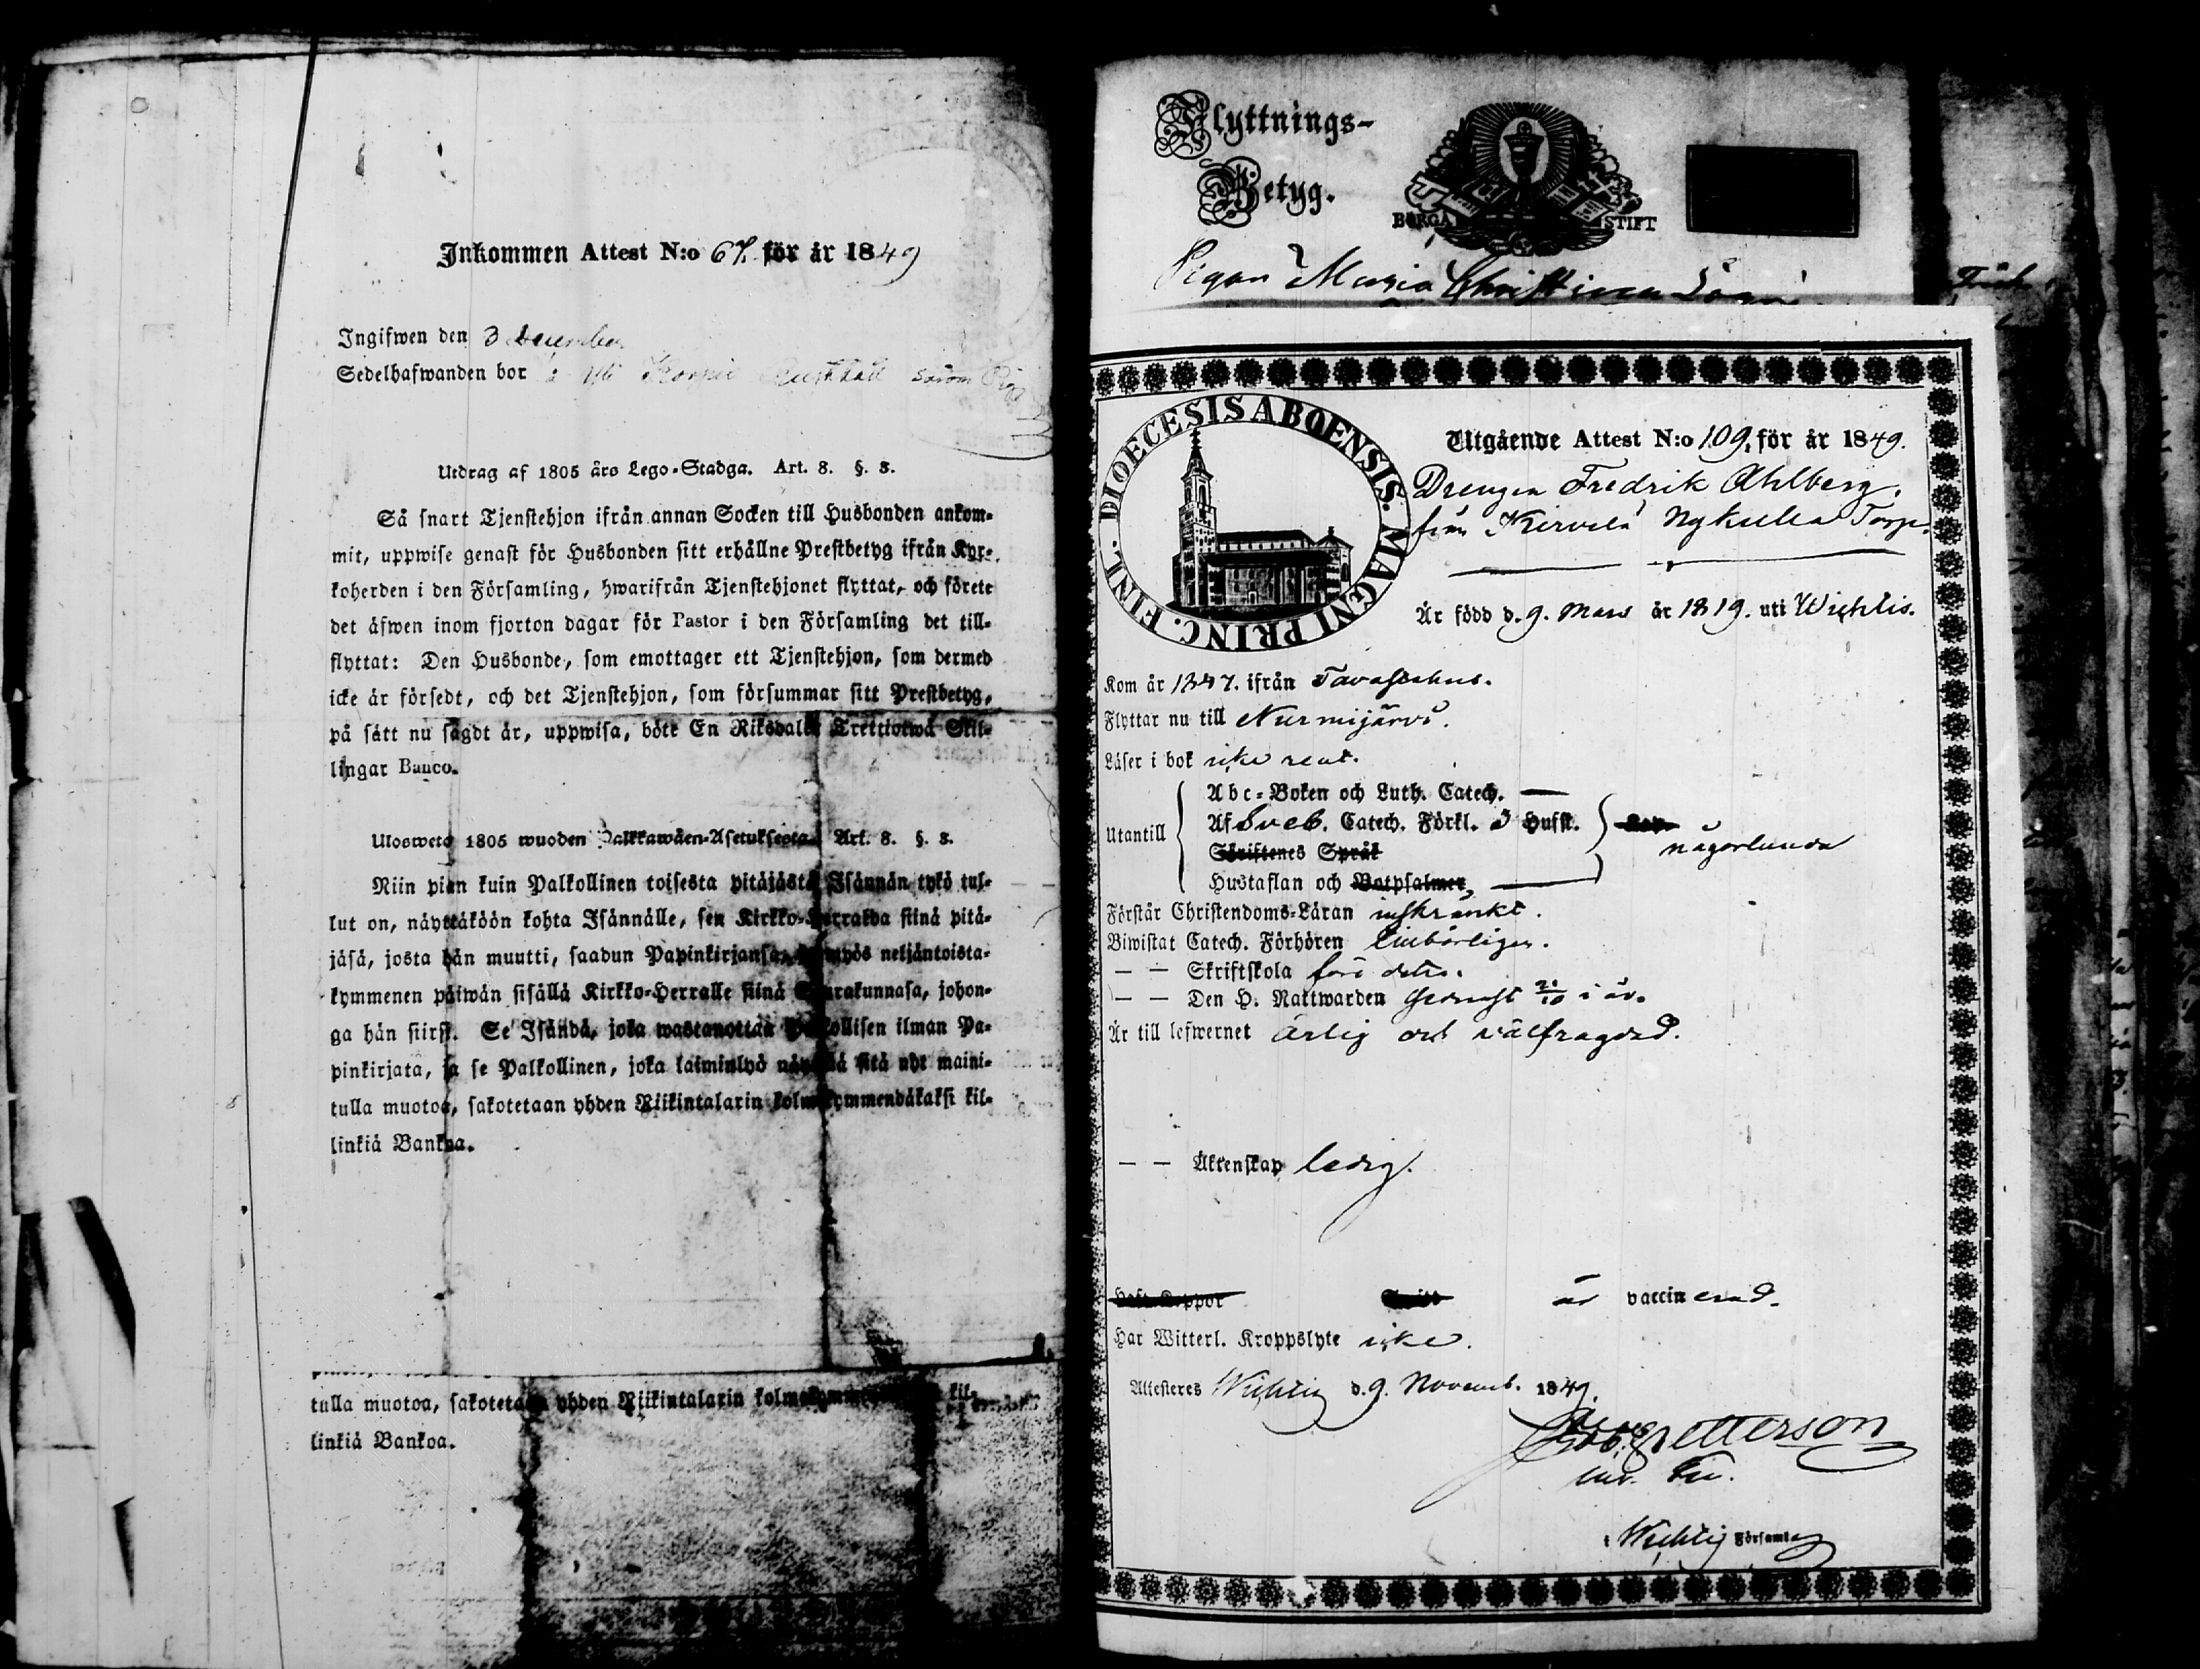 Inkommen Attest N:o 67. för år 1849
Ingifwen den 3 December
Sedelhafwanden bor
Utdrag af 1805 års Lego-Stadga. Art. 8. §. 8.
Så snart Tjenstehjon ifrån annan Socken till Husbonden ankom-
mit, uppwise genast för Husbonden sitt erhållne Prestbetyg ifrån Kyr-
koherden i den Församling, hwarifrån Tjenstehjonet flyttat, och förete
det äfwen inom fjorton dagar för Pastor i den Församling det till-
flyttat: Den Husbonde, som emottager ett Tjenstehjon, som dermed
icke är försedt, och det Tjenstehjon, som försummar sitt Prestbetyg,
på sätt nu sagdt är, uppwisa, böte En Riksdaler Trettiotwå Skil-
lingar Banco.
Uloswetd 1805 wuoden Palkkawäen-Asetuksesta. Art. 8. §. 8.
Niin pian kuin Palkollinen toisesta pitäjästä Isännän tykö tul-
lut on, näyttäköön kohta Isännälle, sen Kirkko-Herralda siinä pitä-
jäsä, josta hän muutti, saadun Papinkirjansa, myös neljäntoista-
kymmenen päiwän sisällä Kirkko-Herralle siinä Seurakunnasa, johon-
ga hän siirsi. Se Isändä, joka wastanottaa Palkollisen ilman Pa-
pinkirjata, ja se Palkollinen, joka laiminlyö näyttää sitä nyt maini-
tulla muotoa, sakotetaan yhden Riikintalarin kolmekymmendäkaksi kil-
linkiä Bankoa.
tulla muotoa, sakotetaan yhden Riikintalarin kil-
linkiä Bankoa.
Flyttnings-
Betyg.
BORGÅ STIFT
Pigan Maria Christina
DIOECESIS ABOENSIS. MAGNI PRINC. FINL.
Utgående Attest N:o 109. för år 1849.
Drengen Fredrik Ahlberg.
från Kirvelä Nykulla Torp.
Är född d. 9. Mars år 1819. uti Wichtis.
Kom år 1847. ifrån Tavastehus.
Flyttar nu till Nurmijärvi.
Läser i bok icke rent.
Utantill
Abc-Boken och Luth. Catech. —
Af Sveb. Catech. Förkl. 3 Hufst.
någorlunda
Skriftenes Språk
Hustaflan och Botpsalmer,
Förstår Christendoms-Läran inskränkt.
Biwistat Catech. Förhören
— — Skriftskola före detta.
— — Den H. Nattwarden i år.
Är till lefwernet ärlig och välfragdad.
— — Äktenskap ledig.
Haft Koppor är vaccinerad.
Har Witterl. Kroppslyte icke.
Attesteres Wichtis d. 9. Novemb. 1849.
Petterson
i Wichtis Församling